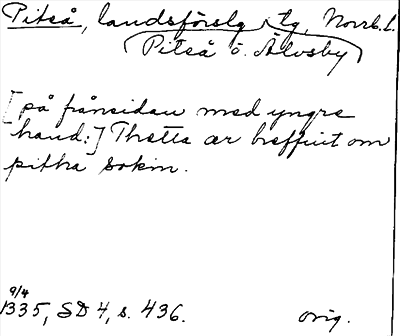 Piteå, landsförslg, tg, Norrb. l.
(Piteå o. Älvsby)
[på frånsidan med yngre
hand:] Thetta är breffuit om
pitha sokin.
9/4
1335, SD 4, s. 436.
orig.